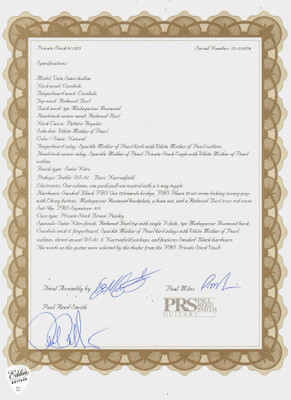 Private Stock #
Serial Number:
Specifications:
Model: Semi-hollow
Neck wood: Cocobolo
Fingerboard wood: Cocobolo
Top wood: Redwood Burl
Back wood type: Madagascar Rosewood
Headstock veneer wood: Redwood Burl
Neck Carve: Pattern Regular
Side dots: White Mother of Pearl
Color / Stain: Natural
Fingerboard inlay: Sparkle Mother of Pearl birds with White Mother of Pearl outlines
Headstock veneer inlay: Sparkle Mother of Pearl Private Stock Eagle with White Mother of Pearl
outline
Finish type: Satin Nitro
Pickups:
Electronics: One volume, one push/pull tone control with a 3-way toggle
Hardware: Smoked Black PRS tremolo bridge, PRS Phase II set screw locking tuning pegs
with Ebony buttons, Madagascar Rosewood backplate, a bone nut, and a Redwood Burl truss rod cover
Set-Up: PRS Signature
Case type: Private Stock Brown Paisley
Specials: Satin Nitro finish, Redwood Burl top with single f-hole, Madagascar Rosewood back,
Cocobolo neck & fingerboard, Sparkle Mother of Pearl bird inlays with White Mother of Pearl
outlines, pickups, and features Smoked Black hardware.
The wood on this guitar were selected by the dealer from the PRS Private Stock Vault
Final Assembly by
Paul Miles
PRS
PAUL REED SMITH
GUITARS
Paul Reed Smith
Eddie's
GUITARS